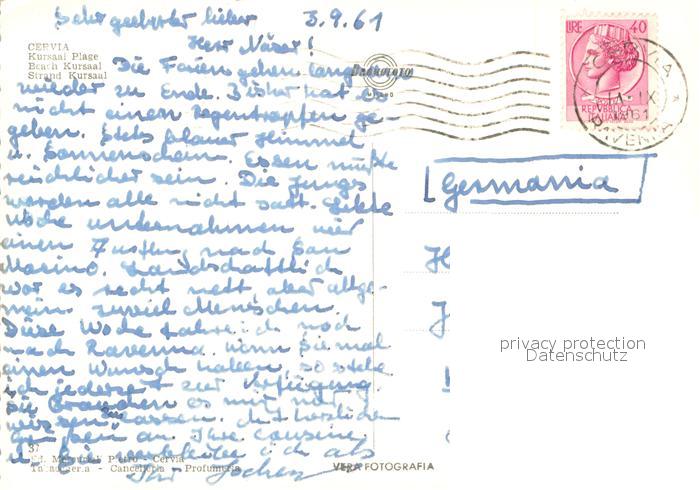 Sehr geehrter lieber 3.9.61
Herr Näser!
Die Ferien gehen langsam
wieder zu Ende. Bisher hat es
nicht einen Regentropfen ge-
geben. Stets blauer Himmel
u. Sonnenschein. Essen müßte
reichlicher sein. Die Jungs
werden alle nicht satt. Letzte
Woche unternahmen wir
einen Ausflug nach San
Marino. Landschaftlich
war es recht nett aber allge-
mein zuviel Menschen.
Diese Woche fahre ich noch
nach Ravenna. Wenn Sie mal
einen Wunsch haben, so stehe
ich jederzeit zur Verfügung.
Sie brauchen es mir nur
wissen zu lassen. Mit herzlichen
Grüßen an Ihre Cousine
ich als
Ihr Jochen
CERVIA
Kursaal Plage
Beach Kursaal
Strand Kursaal
LIRE 40
REPUBBLICA
ITALIANA
[Germania]
privacy protection
Datenschutz
37
Pietro - Cervia
Cancelleria - Profumeria
VERA FOTOGRAFIA